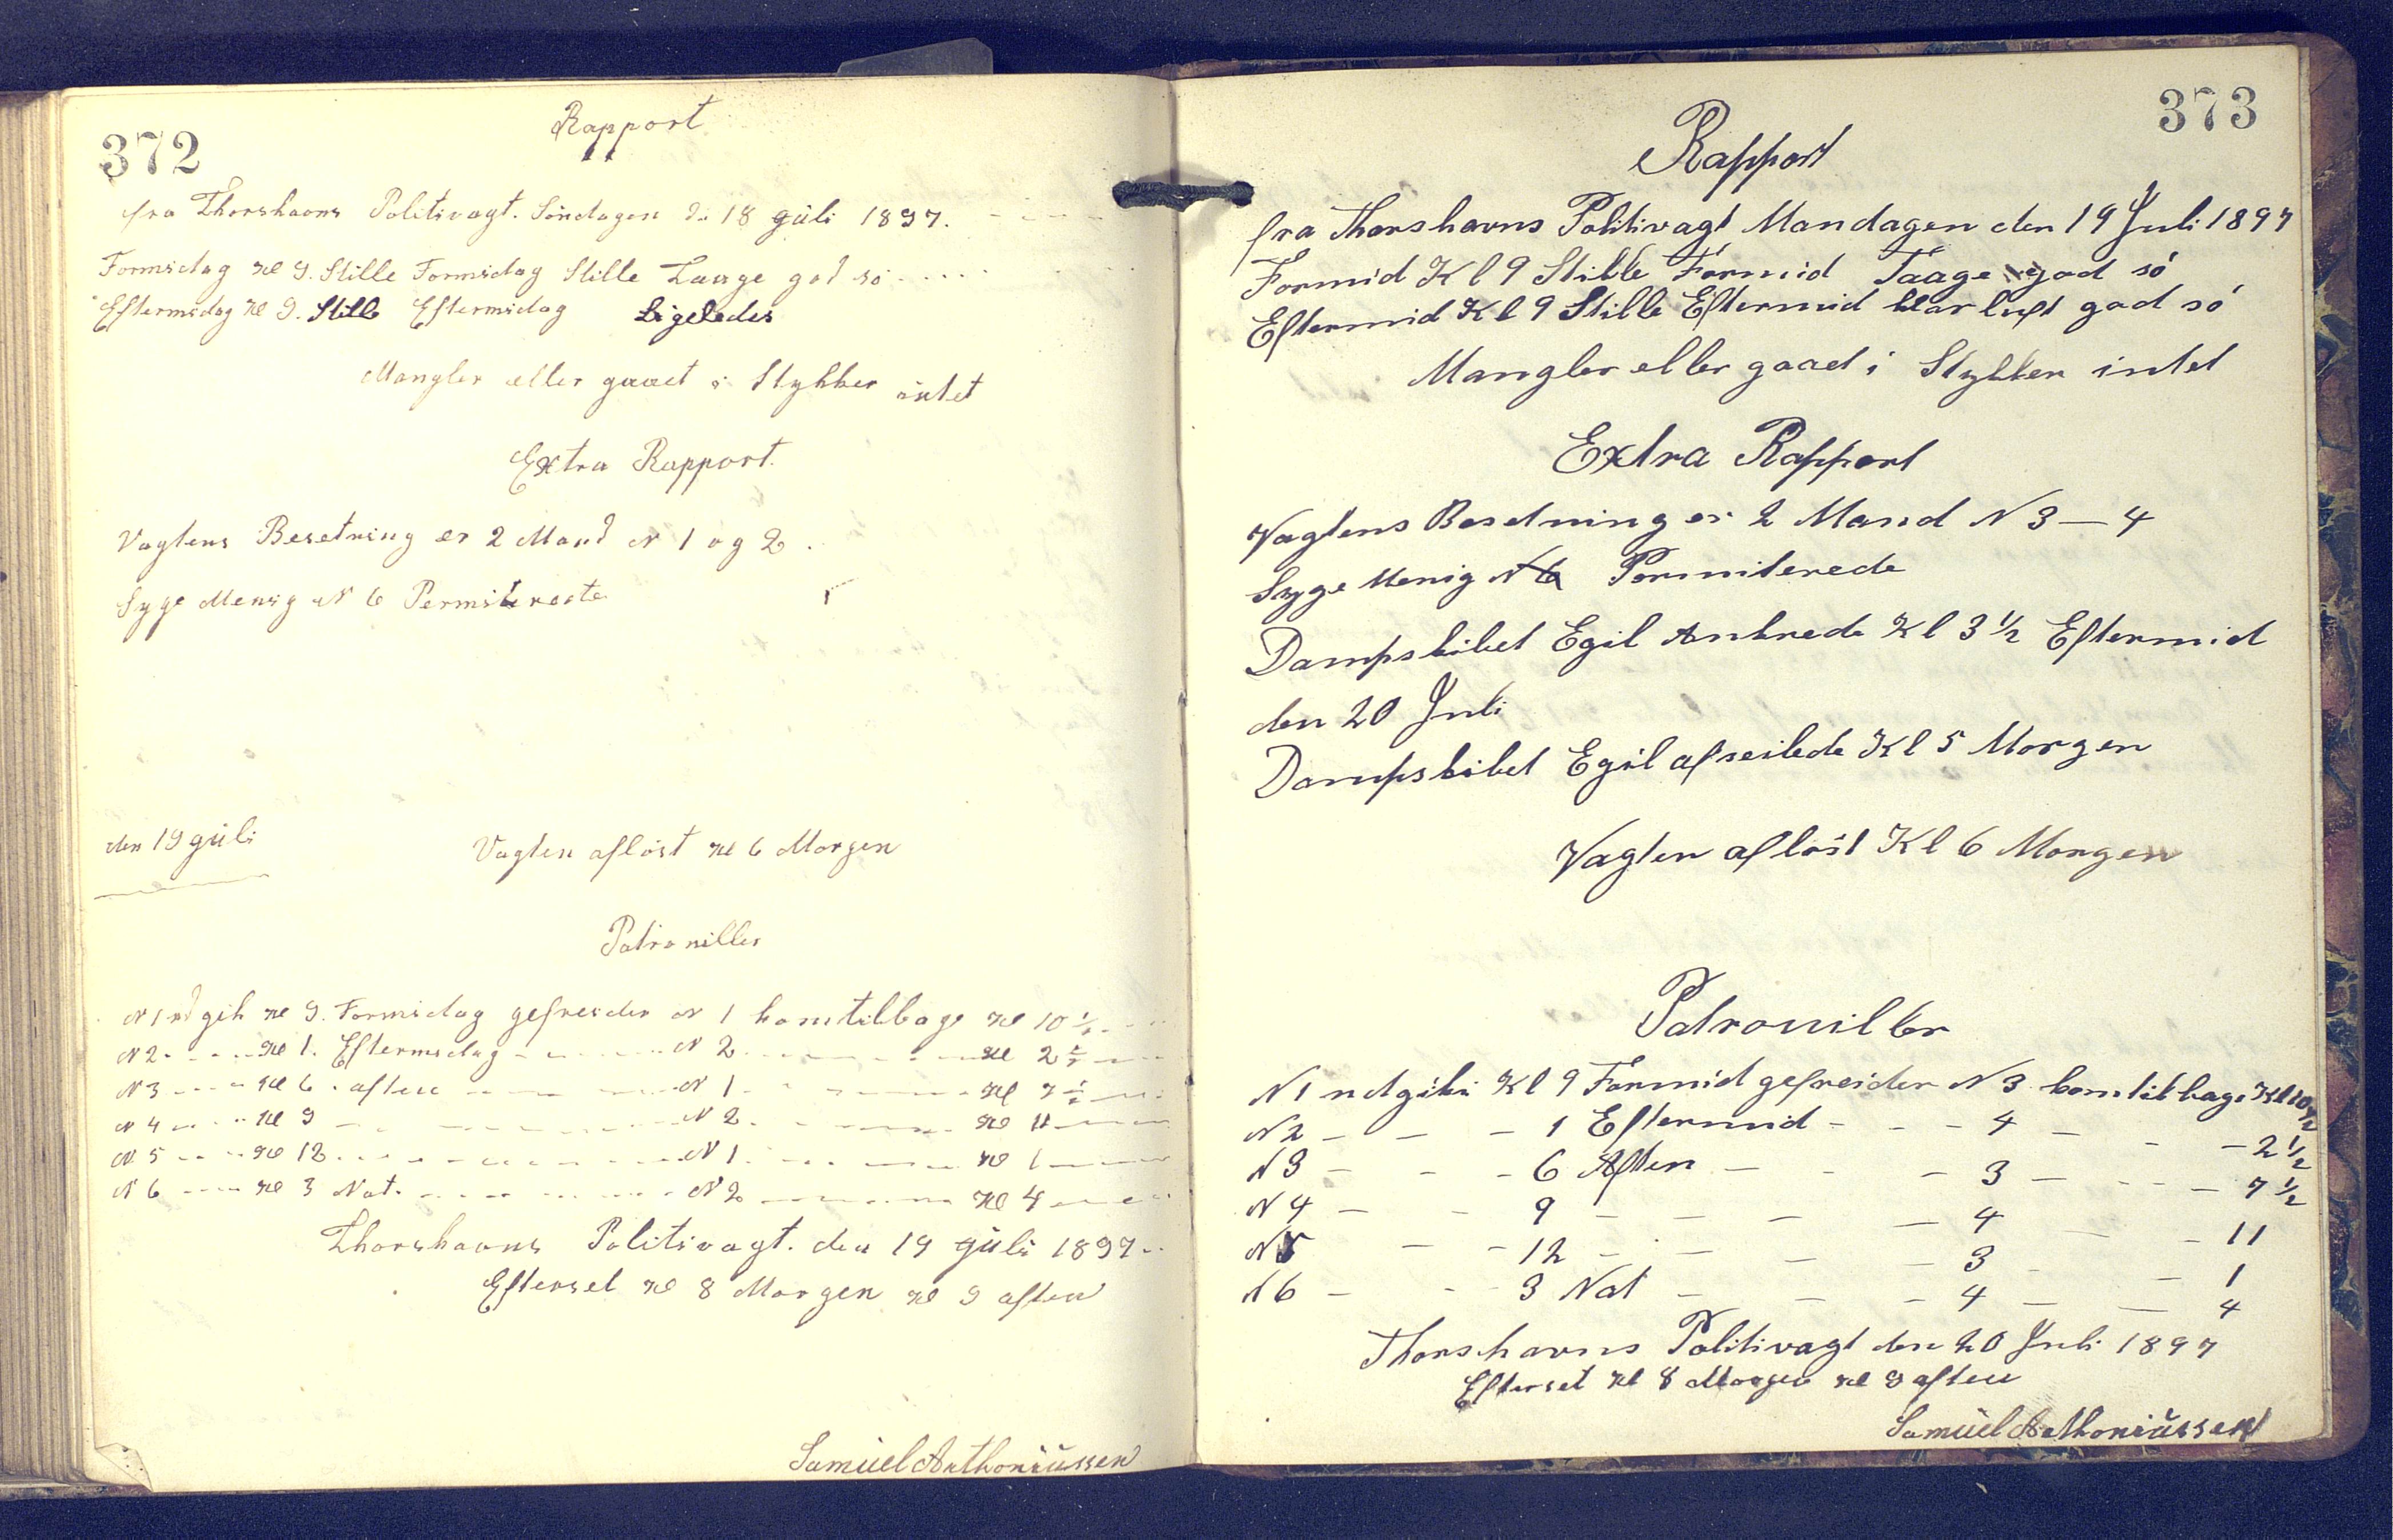 372
Rapport
fra Thorshavns Politivagt. Söndagen d. 18 Juli 1897.
Formidag Kl 9. Stille Formidag Stille Taage god sö
Eftermidag Kl 9. Stille Eftermidag Ligeledes
Mangler eller gaaet i Stykker intet
Extra Rapport.
Vagtens Besetning er 2 Mand N 1 og 2.
Syge Menig N 6 Permiterete
den 19 Juli
Vagten aflöst Kl 6 Morgen
Patroniller
N 1 ud gik Kl 9. Formidag gefreider N 1 komtilbage Kl 10 1/2
N 2 - - - Kl 1. Eftermidag - - - N 2 - - - Kl 2 1/2
N 3 - - - Kl 6. aften - - - N 1 - - - Kl 7 1/2
N 4 - - - Kl 9 - - - N 2 - - - Kl 11
N 5 - - - Kl 12 - - - N 1 - - - Kl 1
N 6 - - - Kl 3 Nat. - - - N 2 - - - Kl 4
Thorshavns Politivagt. den 19 Juli 1897
Efterset Kl 8 Morgen Kl 9 aften
Samuel Anthoniüssen
373
Rapport
fra Thorshavns Politivagt Mandagen den 19 Juli 1897
Formid Kl 9 Stille Formid Taage god sö
Eftermid Kl 9 Stille Eftermid klar luft god sö
Mangler eller gaaed i Stykker intet
Extra Rapport
Vagtens Besetning er 2 Mand N 3 — 4
Syge Menig N 6 Permiterede
Dampskibet Egil Ankrede Kl 3 1/2 Eftermid
den 20 Juli
Dampskibet Egil afseilede Kl 5 Morgen
Vagten aflöst Kl 6 Morgen
Patrouiller
N 1 udgik Kl 9 Formid gefreider N 3 komtilbage Kl 10 1/2
N 2 - - - 1 Eftermid - - - 4 - - - 2 1/2
N 3 - - - 6 Aften - - - 3 - - - 7 1/2
N 4 - - 9 - - - - 4 - - 11
N 5 - - 12 - - - - 3 - - 1
N 6 - - 3 Nat - - - 4 - - 4
Thorshavns Politivagt den 20 Juli 1897
Efterset Kl 8 Morgen Kl 9 aften
Samuel Anthoniüssen